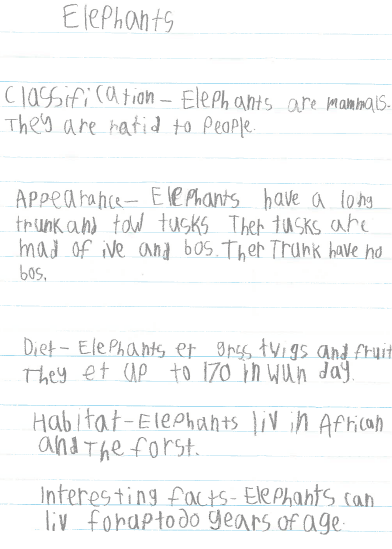 Elephants
Classification - Elephants are mammals.
They are ratid to People.
Appearance - Elephants have a long
trunk and tow tusks Ther tusks are
mad of ive and bos. Ther Trunk have no
bos.
Diet - Elephants et grss twigs and fruit
They et up to 170 in wun day.
Habitat - Elephants liv in African
and The forst.
Interesting facts - Elephants can
liv years of age.